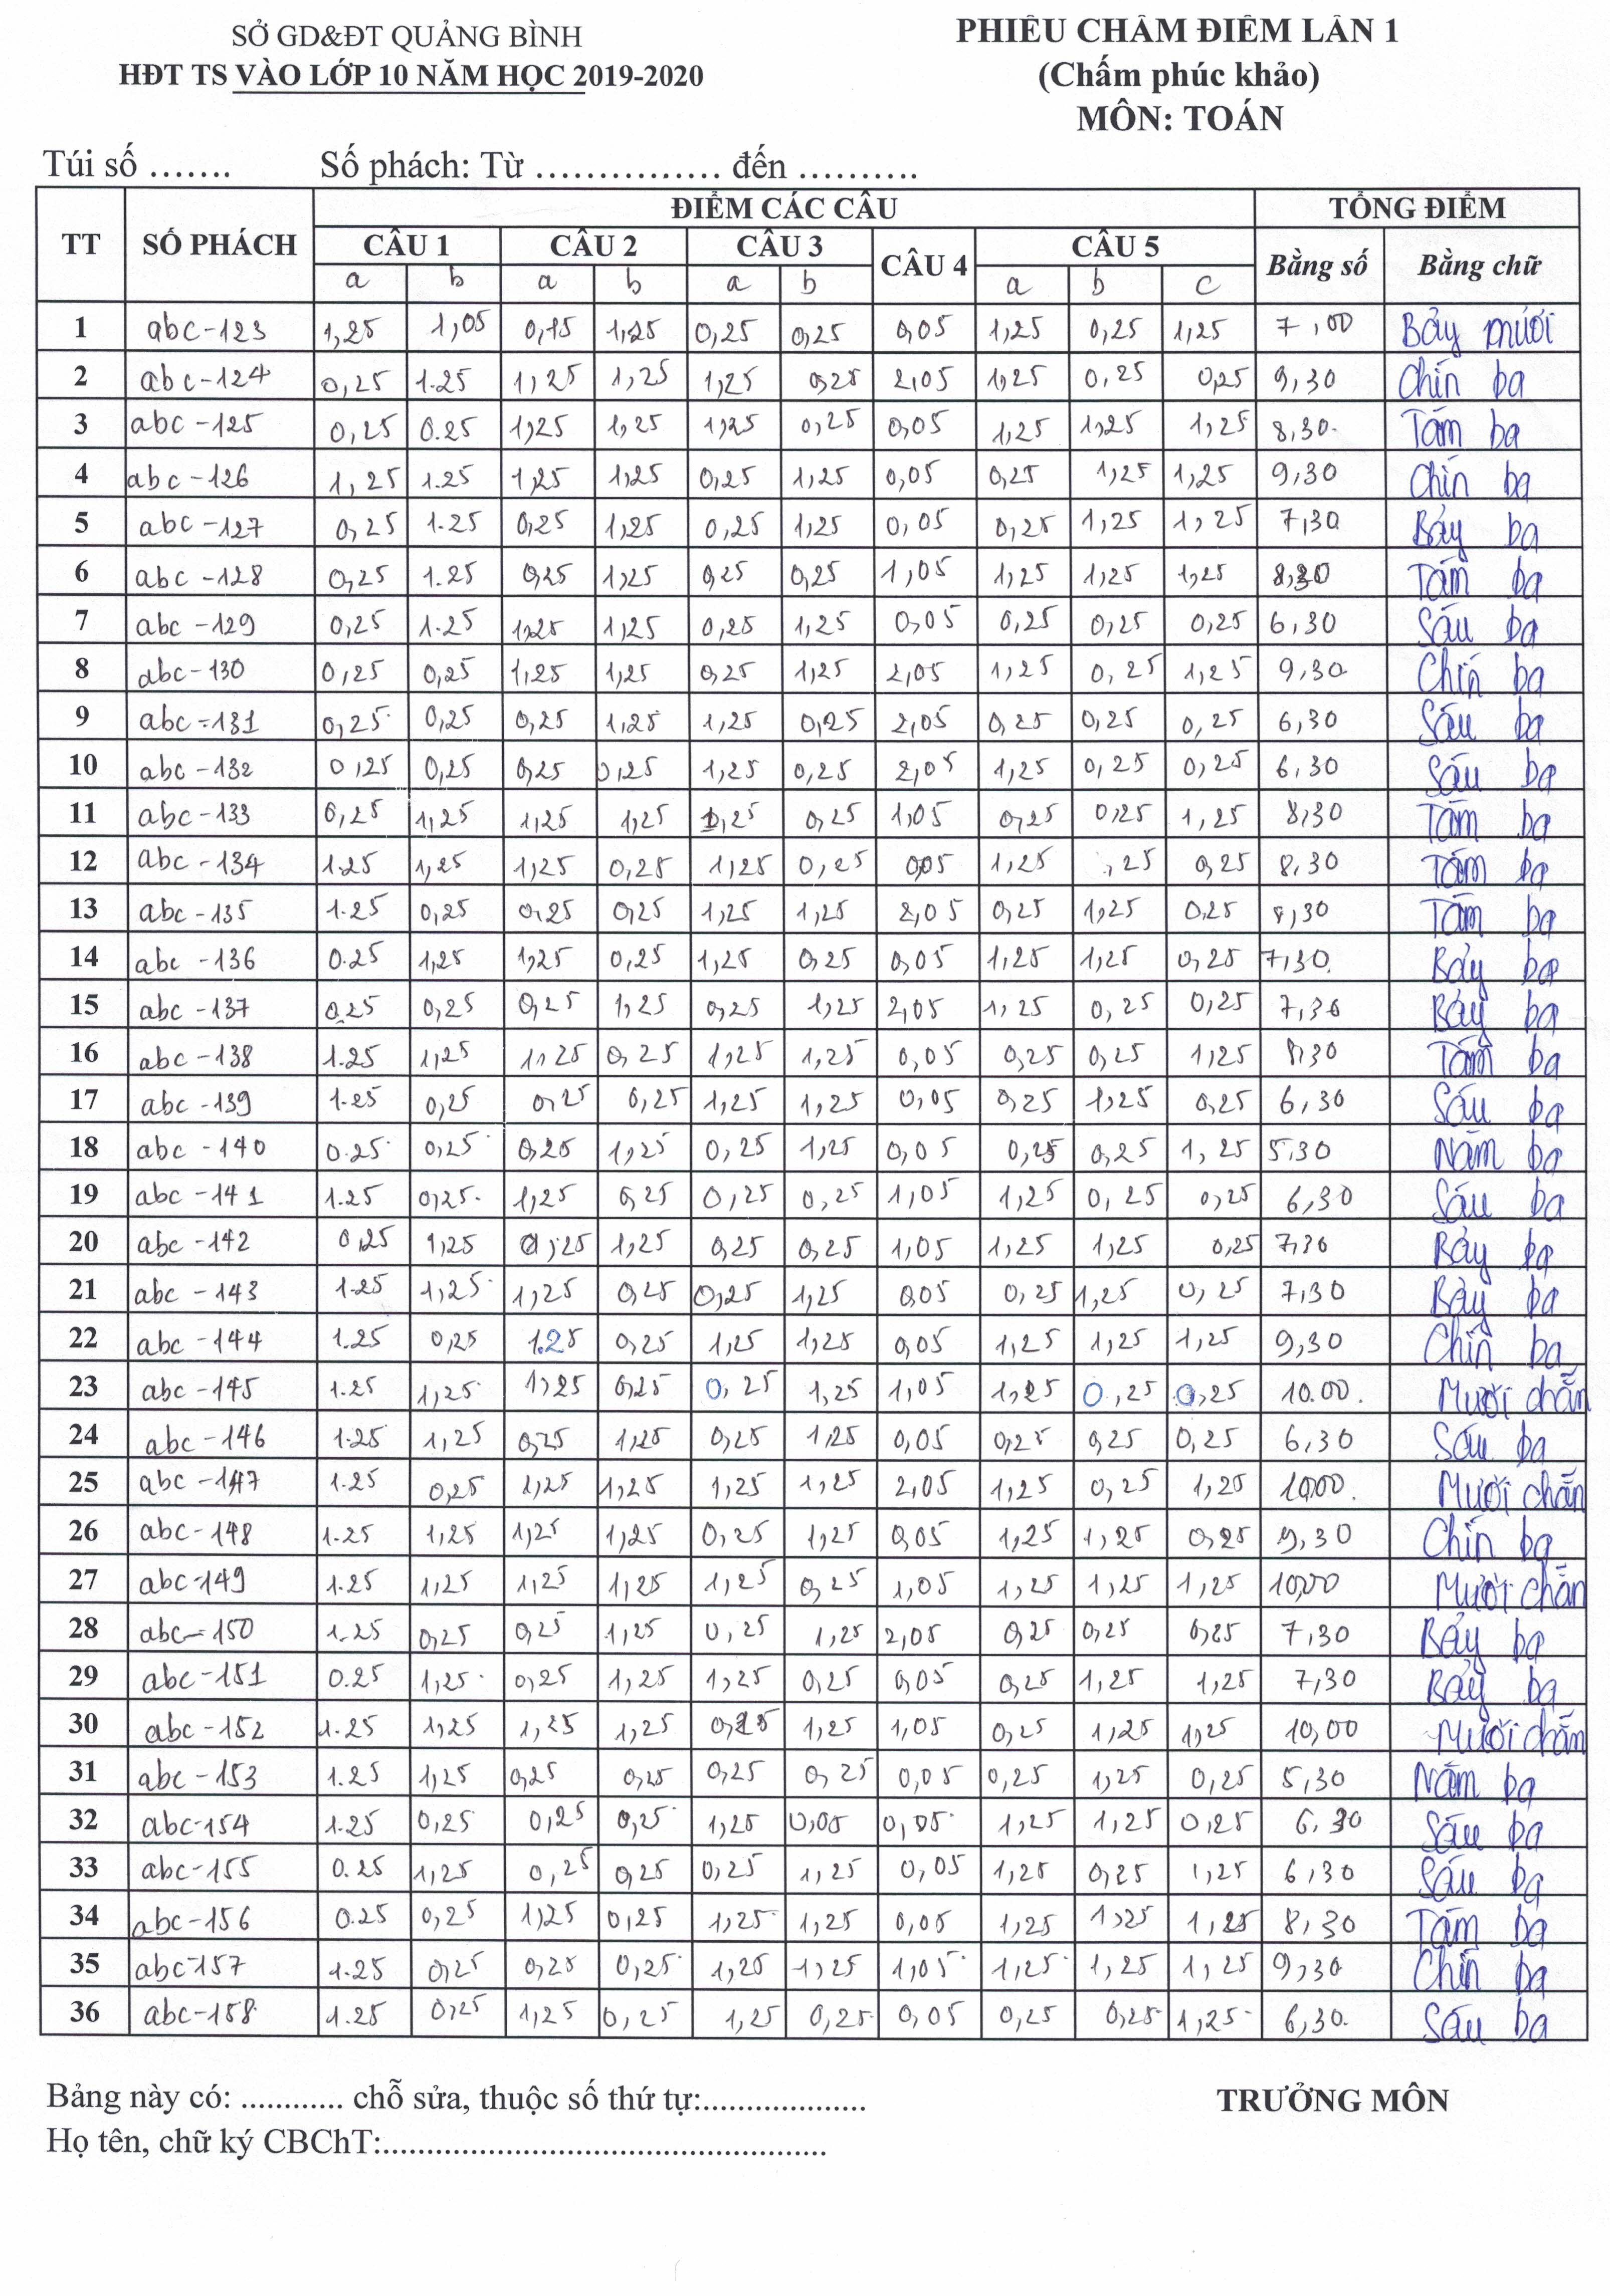 SỞ GD&ĐT QUẢNG BÌNH
HĐT TS VÀO LỚP 10 NĂM HỌC 2019-2020
PHIẾU CHẤM ĐIỂM LẦN 1
(Chấm phúc khảo)
MÔN: TOÁN
Túi số ....... Số phách: Từ ................ đến ..........
TT SỐ PHÁCH ĐIỂM CÁC CÂU TỔNG ĐIỂM
CÂU 1 CÂU 2 CÂU 3 CÂU 4 CÂU 5 Bằng số Bằng chữ
a b a b a b a b c
1 abc-123 1,25 1,05 0,15 1,25 0,25 0,25 0,05 1,25 0,25 1,25 7,00 Bảy mươi
2 abc-124 0,25 1.25 1,25 1,25 1,25 0,25 2,05 1,25 0,25 0,25 9,30 Chín ba
3 abc-125 0,25 0.25 1,25 1,25 1,25 0,25 0,05 1,25 1,25 1,25 8,30. Tám ba
4 abc-126 1,25 1.25 1,25 1,25 0,25 1,25 0,05 0,25 1,25 1,25 9,30 Chín ba
5 abc-127 0,25 1.25 0,25 1,25 0,25 1,25 0,05 0,25 1,25 1,25 7,30 Bảy ba
6 abc-128 0,25 1.25 0,25 1,25 0,25 0,25 1,05 1,25 1,25 1,25 8,30 Tám ba
7 abc-129 0,25 1.25 1,25 1,25 0,25 1,25 0,05 0,25 0,25 0,25 6,30 Sáu ba
8 abc-130 0,25 0,25 1,25 1,25 0,25 1,25 2,05 1,25 0,25 1,25 9,30 Chín ba
9 abc-131 0,25 0,25 0,25 1,25 1,25 0,25 2,05 0,25 0,25 0,25 6,30 Sáu ba
10 abc-132 0,25 0,25 0,25 0,25 1,25 0,25 2,05 1,25 0,25 0,25 6,30 Sáu ba
11 abc-133 0,25 1,25 1,25 1,25 1,25 0,25 1,05 0,25 0,25 1,25 8,30 Tám ba
12 abc-134 1.25 1,25 1,25 0,25 1,25 0,25 0,05 1,25 ,25 0,25 8,30 Tám ba
13 abc-135 1.25 0,25 0,25 0,25 1,25 1,25 2,05 0,25 1,25 0,25 8,30 Tám ba
14 abc-136 0.25 1,25 1,25 0,25 1,25 0,25 0,05 1,25 1,25 0,25 7,30. Bảy ba
15 abc-137 0,25 0,25 0,25 1,25 0,25 1,25 2,05 1,25 0,25 0,25 7,30 Bảy ba
16 abc-138 1.25 1,25 1,25 0,25 1,25 1,25 0,05 0,25 0,25 1,25 8,30 Tám ba
17 abc-139 1.25 0,25 0,25 0,25 1,25 1,25 0,05 0,25 1,25 0,25 6,30 Sáu ba
18 abc-140 0.25 0,25 0,25 1,25 0,25 1,25 0,05 0,25 0,25 1,25 5.30 Năm ba
19 abc-141 1.25 0,25. 1,25 0,25 0,25 0,25 1,05 1,25 0,25 0,25 6,30 Sáu ba
20 abc-142 0,25 1,25 0,25 1,25 0,25 0,25 1,05 1,25 1,25 0,25 7,30 Bảy ba
21 abc-143 1.25 1,25 1,25 0,25 0,25 1,25 0,05 0,25 1,25 0,25 7,30 Bảy ba
22 abc-144 1.25 0,25 1.25 0,25 1,25 1,25 0,05 1,25 1,25 1,25 9,30 Chín ba
23 abc-145 1.25 1,25 1,25 0,25 0,25 1,25 1,05 1,25 0,25 0,25 10.00. Mười chẵn
24 abc-146 1.25 1,25 0,25 1,25 0,25 1,25 0,05 0,25 0,25 0,25 6,30 Sáu ba
25 abc-147 1.25 0,25 1,25 1,25 1,25 1,25 2,05 1,25 0,25 1,25 10,00. Mười chẵn
26 abc-148 1.25 1,25 1,25 1,25 0,25 1,25 0,05 1,25 1,25 0,25 9,30 Chín ba
27 abc-149 1.25 1,25 1,25 1,25 1,25 0,25 1,05 1,25 1,25 1,25 10,00 Mười chẵn
28 abc-150 1.25 0,25 0,25 1,25 0,25 1,25 2,05 0,25 0,25 0,25 7,30 Bảy ba
29 abc-151 0.25 1,25 0,25 1,25 1,25 0,25 0,05 0,25 1,25 1,25 7,30 Bảy ba
30 abc-152 1.25 1,25 1,25 1,25 0,25 1,25 1,05 0,25 1,25 1,25 10,00 Mười chẵn
31 abc-153 1.25 1,25 0,25 0,25 0,25 0,25 0,05 0,25 1,25 0,25 5,30 Năm ba
32 abc-154 1.25 0,25 0,25 0,25 1,25 0,05 0,05 1,25 1,25 0,25 6,30 Sáu ba
33 abc-155 0.25 1,25 0,25 0,25 0,25 1,25 0,05 1,25 0,25 1,25 6,30 Sáu ba
34 abc-156 0.25 0,25 1,25 0,25 1,25 1,25 0,05 1,25 1,25 1,25 8,30 Tám ba
35 abc-157 1.25 0,25 0,25 0,25 1,25 1,25 1,05 1,25 1,25 1,25 9,30 Chín ba
36 abc-158 1.25 0,25 1,25 0,25 1,25 0,25 0,05 0,25 0,25 1,25 6,30. Sáu ba
Bảng này có: ............ chỗ sửa, thuộc số thứ tự:...................
TRƯỞNG MÔN
Họ tên, chữ ký CBChT:...................................................